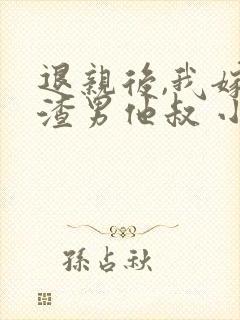 退親後,我嫁
渣男他叔 小
孫占秋